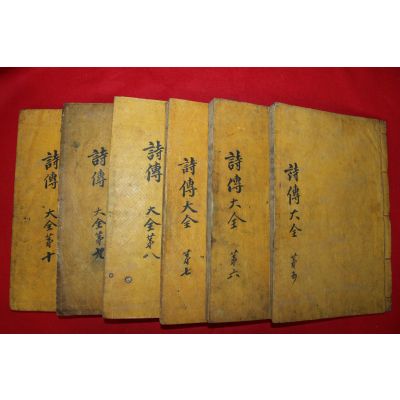 詩傳大全
第五
詩傳大全
第六
詩傳大全
第七
詩傳
大全第八
詩傳
大全第九
詩傳
大全第十